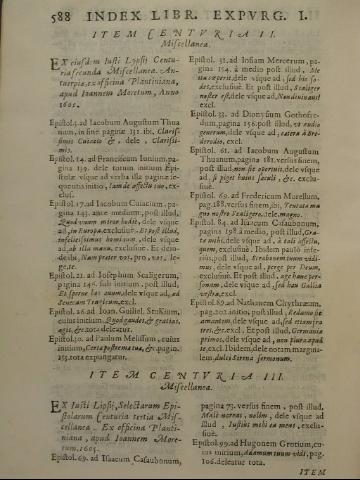 588 INDEX LIBR. EXPVRG. I.
ITEM CENTVRIA II.
Miscellanea.
EX eiusdem Iusti Lipsii Centu-
ria secunda Miscellanea. An-
tuerpiæ, ex officina Plantiniana,
apud Ioannem Moretum, Anno
1605.
Epistol.4. ad Iacobum Augustum Thua
num, in fine paginæ 131. ibi, Claris-
simis Cuiacio &, dele, Claris-
simis.
Epistol.14. ad Franciscum Iunium, pa-
gina 139. dele totum initium Epi-
stolæ vsque ad verba illa paginæ se-
quentis initio, Iam de affectu tuo, ex-
clus.
Epistol.17. ad Iacobum Cuiacium, pa-
gina 143. ante medium, post illud,
Quod vnum miror hodie, dele vsque
ad, in Europa, exclusiuè. Et post illud,
infelicissimas hominum, dele vsque
ad, ab illa manu, exclusiuè. Et dein-
de ibi, Nam præter vos, pro, vos, le-
ge, te.
Epistol.21. ad Iosephum Scaligerum,
pagina 146. sub initium, post illud,
Et sperne hoc æuum, dele vsque ad, ad
Senecam Tragicum, excl.
Epistol.26. ad Ioan. Guiliel. Stukium,
cuius initium, Quod gaudes, & gratius,
agis, & tota deleatur.
Epistol.30. ad Paulum Melissum, cuius
initium, Certa poëtæmata, &c. pagin.
155. tota expungatur.
Epistol. 31. ad Iosiam Mercerum, pa-
gina 154. à medio post illud, Me
tu ceperis, dele vsque ad, sed hic sa-
lus, excl. Et post illud, Scaliger
noster est, dele vsque ad, Nundinum ei
excl.
Epistol. 33. ad Dionysium Gothofre-
dum, pagina 156. post illud,
generum, dele vsque ad, catera à Bro-
deo, excl.
Epistol. 61. ad Iacobum Augustum
Thuanum, pagina 181. versus finem,
post illud, non sic oportuit, dele vsque
ad, si piget huius sæculi, &c. exclu-
siuè.
Epistol. 69. ad Fredericum Morellum,
pag.188. versus finem, ibi,
Scaligero, tele, magno.
Epistol. 84. ad Isaacum Casaubonum,
pagina 198. à medio, post illud,
dele vsque ad, à tali affectu,
quem, exclusiuè. Eodem paulò infe-
rius, post illud, vidi-
mus, dele vsque ad, perge per Deum,
exclusiuè. Et post illud,
dele vsque ad, sed hæc Gallia
vestra, excl.
Epistol.89. ad Nathanem Chytræum,
pag.202. initio, post illud,
amantem, dele vsque ad, sed
tres, & excl. Et post illud, Germania
primos, dele vsque ad, non plura apud
te, excl. Ibidem, dele notam margina-
lem, dulcis Serena sermonum.
ITEM CENTVRIA III.
Miscellanea.
EX Iusti Lipsii, Selectarum Epi-
stolarum Centuria tertia Mis-
cellanea. Ex officina Planti-
niana, apud Ioannem More-
tum, 1605.
Epistol.69. ad Isaacum Casaubonum,
pagina 73. versus finem, post illud,
Malè mereri, nolim, dele vsque ad
illud, Iustius mobi ea mens, exclu-
siuè.
Epistol.99. ad Hugonem Grotium, cu-
ius initium, Adamum tuum vidi, pag.
106. deleatur tota.
ITEM